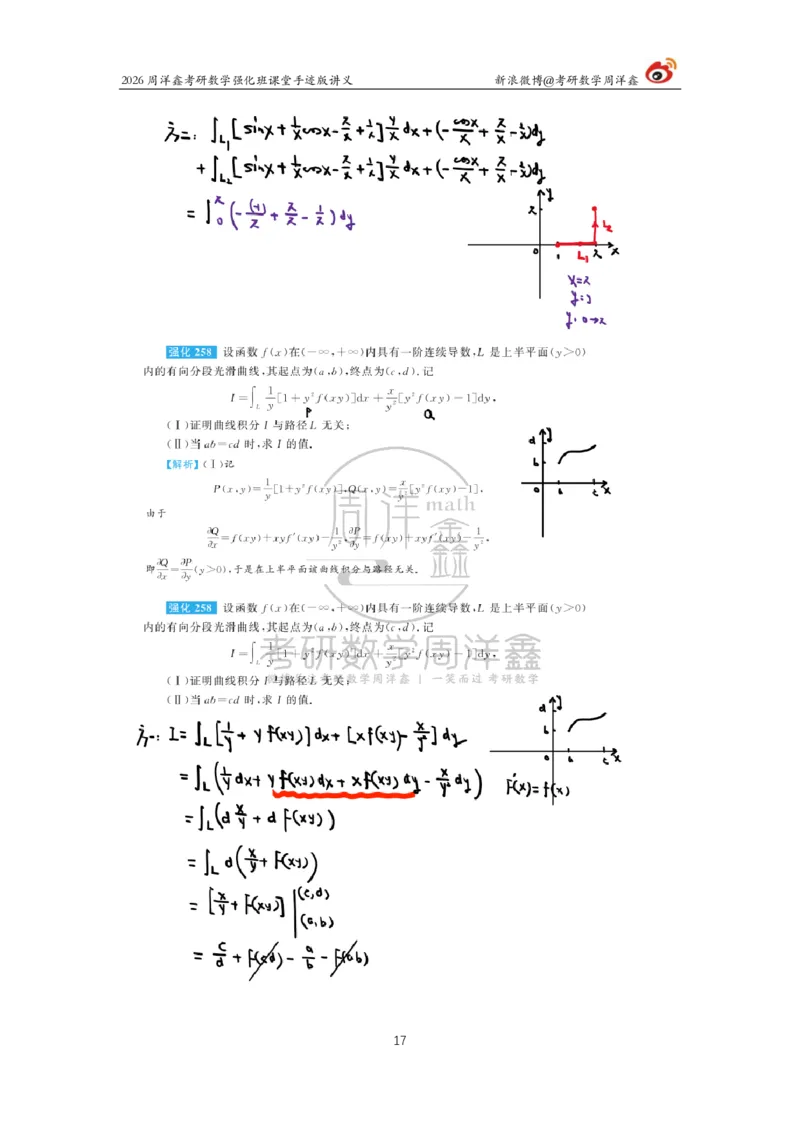 2026 周洋鑫考研数学强化班课堂手迹版讲义 新浪微博@考研数学周洋鑫
法二: ∫_{L₁} [sinx + 1/x cosx - π/x + 1/x] y/x dx + (-cosx/x + π/x - 1/x) dy
+ ∫_{L₂} [sinx + 1/x cosx - π/x + 1/x] y/x dx + (-cosx/x + π/x - 1/x) dy
= ∫₀^π (-(-1)/π + π/π - 1/π) dy
y
π
L₂
0 1 L₁ π x
x=π
y=y
y: 0→π
强化 258 设函数 f(x)在(-∞,+∞)内具有一阶连续导数,L 是上半平面(y>0)
内的有向分段光滑曲线,其起点为(a,b),终点为(c,d).记
I=∫_L 1/y [1+y²f(xy)]dx + x/y² [y²f(xy)-1]dy,
P Q
(Ⅰ)证明曲线积分 I 与路径 L 无关;
(Ⅱ)当 ab=cd 时,求 I 的值.
d
b
0 a c x
【解析】(Ⅰ)记
P(x,y)= 1/y [1+y²f(xy)],Q(x,y)= x/y² [y²f(xy)-1],
由于
∂Q/∂x =f(xy)+xyf′(xy)- 1/y², ∂P/∂y =f(xy)+xyf′(xy)- 1/y²,
即 ∂Q/∂x = ∂P/∂y (y>0),于是在上半平面该曲线积分与路径无关.
周洋鑫 math
强化 258 设函数 f(x)在(-∞,+∞)内具有一阶连续导数,L 是上半平面(y>0)
内的有向分段光滑曲线,其起点为(a,b),终点为(c,d).记
考研数学周洋鑫
I=∫_L 1/y [1+y²f(xy)]dx + x/y² [y²f(xy)-1]dy,
(Ⅰ)证明曲线积分 I 与路径 L 无关;
数学周洋鑫 | 一笑而过 考研数学
(Ⅱ)当 ab=cd 时,求 I 的值.
法一: I = ∫_L [1/y + y f(xy)] dx + [x f(xy) - x/y²] dy
d
b
0 a c x
= ∫_L (1/y dx + y f(xy) dx + x f(xy) dy - x/y² dy) F′(x)=f(x)
= ∫_L (d x/y + d F(xy))
= ∫_L d(x/y + F(xy))
= [x/y + F(xy)] |_(a,b)^(c,d)
= c/d + F(cd) - a/b - F(ab)
17